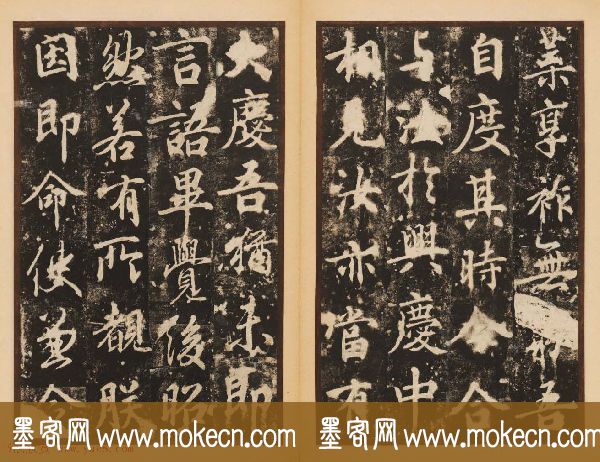 享祚無吾
自度其時今合
与汝於興慶中
相見汝亦當有
大慶吾猶未即
言語畢覺後昭
然若有所覩朕
因即命使兼令
墨客网 www.mokecn.com
墨客网 www.mokecn.com